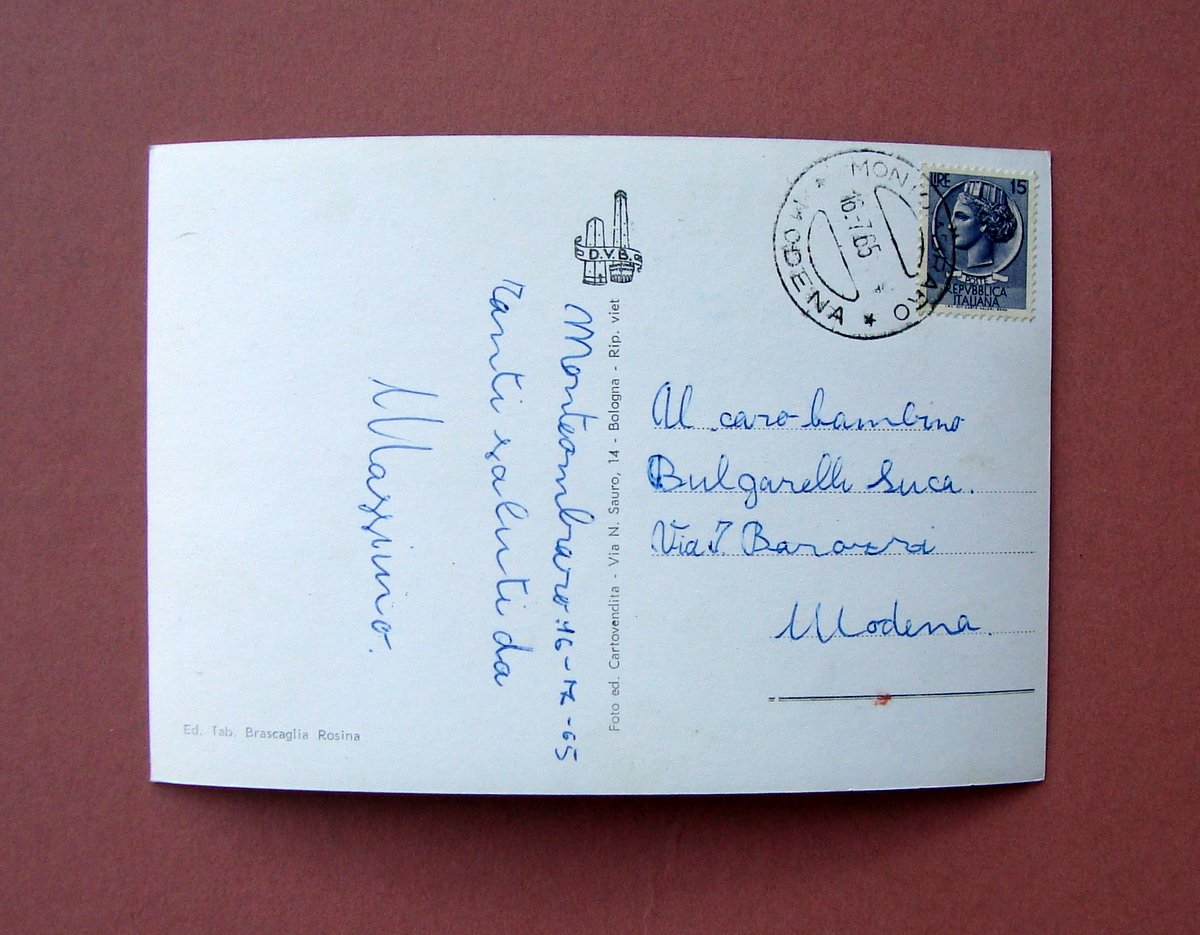 MONTEOMBRARO
16.7.65
* MODENA *
LIRE 15
POSTE
REPVBBLICA
ITALIANA
D.V.B.
Al caro bambino
Bulgarelli Luca.
Via Barozzi
Modena.
Monteombraro 16-7-65
Tanti saluti da
Massimo.
Foto ed. Cartovendita - Via N. Sauro, 14 - Bologna - Rip. viet
Ed. Tab. Brascaglia Rosina